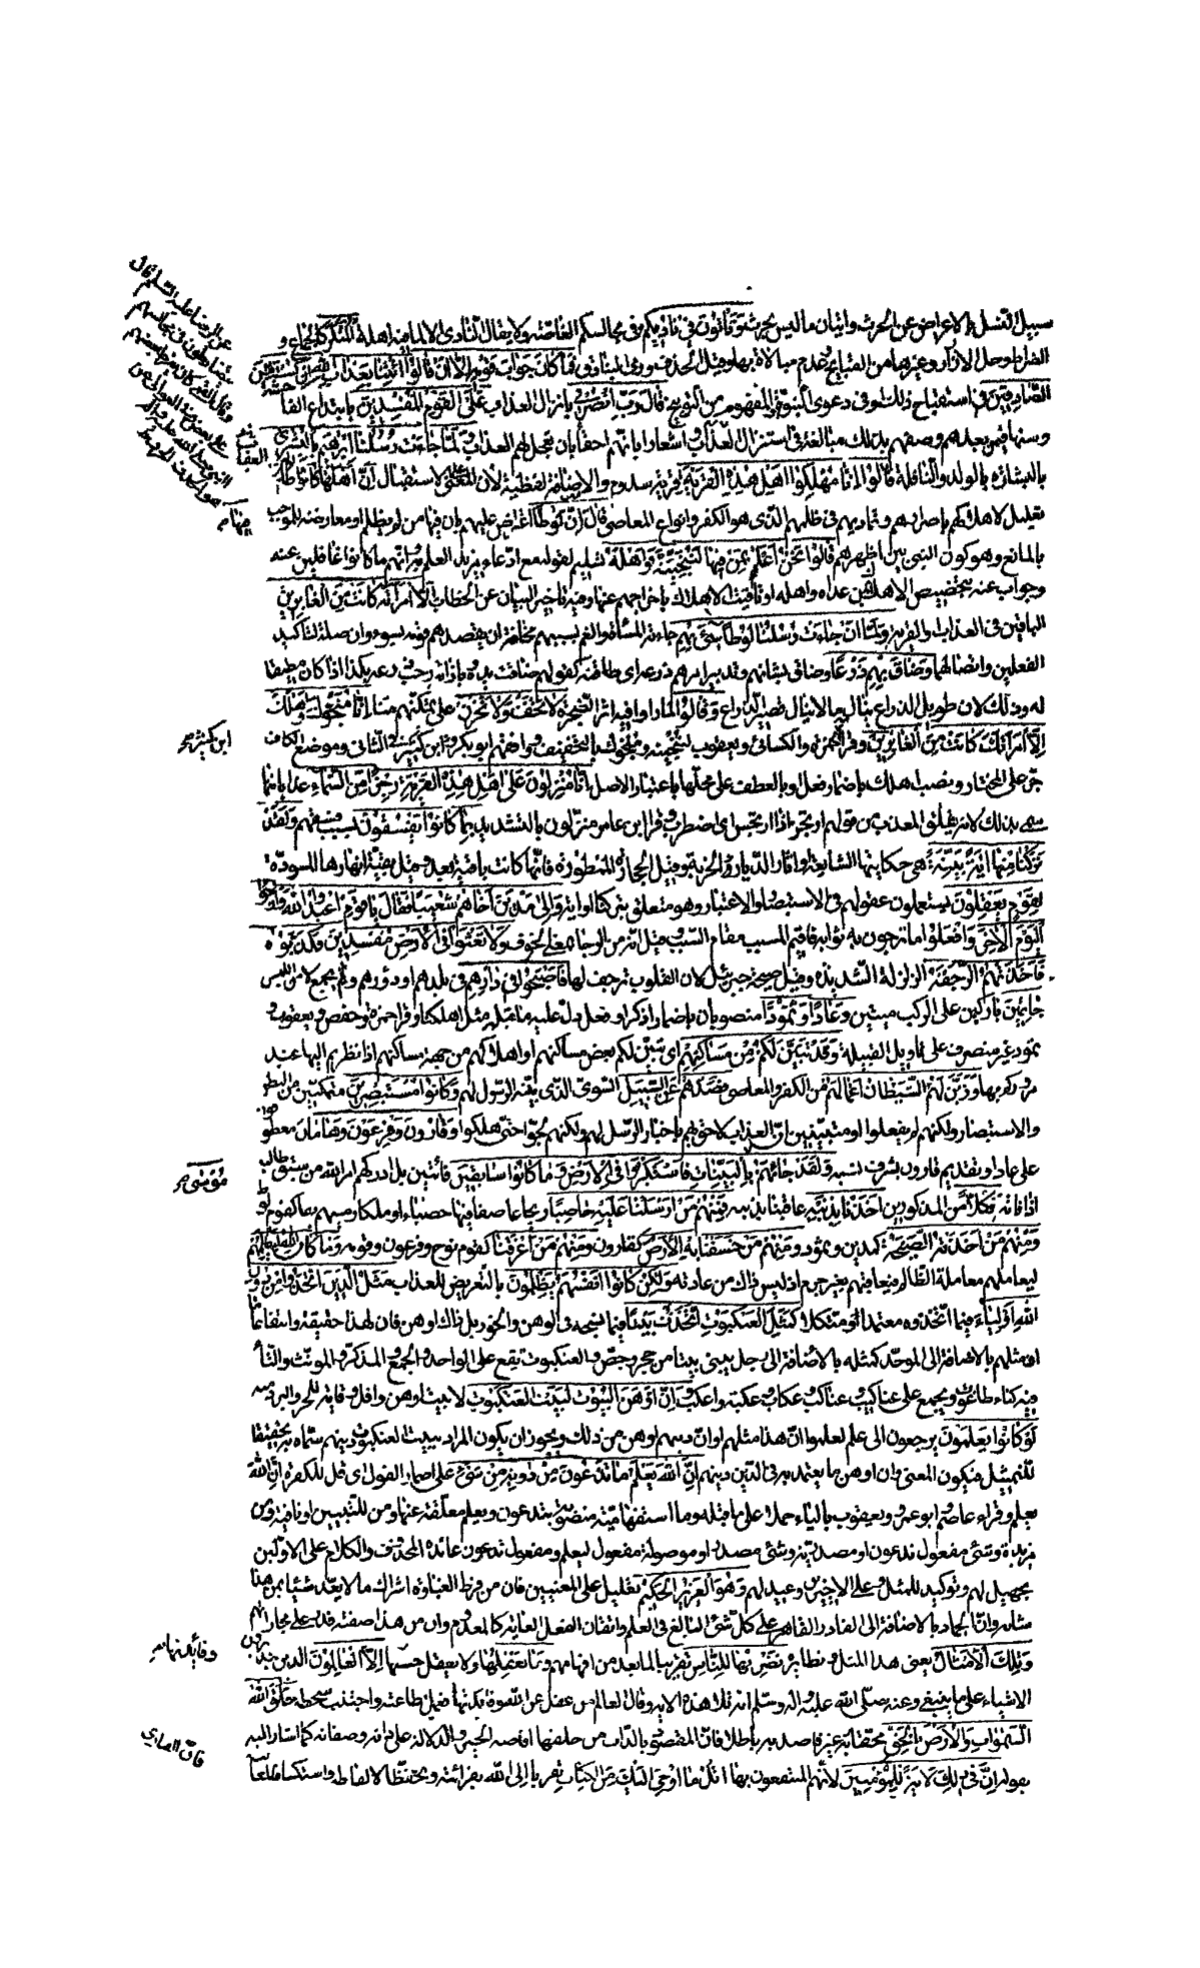 سبيل النسل بالاعراض عن الحرث واتيان ما ليس بحرث وَتَأْتُونَ فِي نَادِيكُمُ في مجالسكم الغاصة ولا يقال النادي الا لما فيه اهله الْمُنْكَرَ كالجماع و
الضراط وحل الازار وغيرها من القبايح عدم مبالاة بها وقيل الحذف ورمي البنادق فَمَا كَانَ جَوَابَ قَوْمِهِ إِلَّا أَنْ قَالُوا ائْتِنَا بِعَذَابِ اللَّهِ إِنْ كُنْتَ مِنَ
الصَّادِقِينَ في استقباح ذلك او في دعوى النبوة المفهومة من التوبيخ قَالَ رَبِّ انْصُرْنِي بانزال العذاب عَلَى الْقَوْمِ الْمُفْسِدِينَ بابتداع الفا
وسنها فيمن بعدهم وصفهم بذلك مبالغة في استنزال العذاب واشعارا بانهم احقاء بان يعجل لهم العذاب وَلَمَّا جَاءَتْ رُسُلُنَا إِبْرَاهِيمَ بِالْبُشْرَى
بالبشارة بالولد والنافلة قَالُوا إِنَّا مُهْلِكُو أَهْلِ هَذِهِ الْقَرْيَةِ قرية سدوم والاضافة لفظية لان المعنى على الاستقبال إِنَّ أَهْلَهَا كَانُوا ظَالِمِينَ
تعليل لاهلاكهم باصرارهم وتماديهم في ظلمهم الذي هو الكفر وانواع المعاصي قَالَ إِنَّ فِيهَا لُوطًا اعتراض عليهم بان فيها من لم يظلم او معارضة للموجب
بالمانع وهو كون النبي بين اظهرهم قَالُوا نَحْنُ أَعْلَمُ بِمَنْ فِيهَا لَنُنَجِّيَنَّهُ وَأَهْلَهُ تسليم لقوله مع ادعاء مزيد العلم به وانهم ما كانوا غافلين عنه
وجواب عنه بتخصيص الاهل بمن عداه واهله او تاقيت الاهلاك باخراجهم عنها وفيه تاخير البيان عن الخطاب إِلَّا امْرَأَتَهُ كَانَتْ مِنَ الْغَابِرِينَ
الباقين في العذاب او القرية وَلَمَّا أَنْ جَاءَتْ رُسُلُنَا لُوطًا سِيءَ بِهِمْ جاءته المساءة والغم بسببهم مخافة ان يقصدهم قومه بسوء وان صلة لتاكيد
الفعلين واتصالهما وَضَاقَ بِهِمْ ذَرْعًا وضاق بشانهم وتدبير امرهم ذرعه اي طاقته كقولهم ضاقت يده وبازائه رحب ذرعه بكذا اذا كان مطيقا
له وذلك لان طويل الذراع ينال ما لا ينال قصير الذراع وَقَالُوا لما راوا فيه اثر الضجرة لَا تَخَفْ وَلَا تَحْزَنْ على تمكنهم منا إِنَّا مُنَجُّوكَ وَأَهْلَكَ
إِلَّا امْرَأَتَكَ كَانَتْ مِنَ الْغَابِرِينَ وقرا حمزة والكسائي ويعقوب لننجينه ومنجوك بالتخفيف ووافقهم ابو بكر وابن كثير في الثاني وموضع الكاف
ابن كثير صح
جر على المختار ونصب اهلك باضمار فعل او بالعطف على محلها باعتبار الاصل إِنَّا مُنْزِلُونَ عَلَى أَهْلِ هَذِهِ الْقَرْيَةِ رِجْزًا مِنَ السَّمَاءِ عذابا منها
سمي بذلك لانه يقلق المعذب من قولهم ارتجز اذا ارتجس اي اضطرب وقرا ابن عامر منزلون بالتشديد بِمَا كَانُوا يَفْسُقُونَ بسبب فسقهم وَلَقَدْ
تَرَكْنَا مِنْهَا آيَةً بَيِّنَةً هي حكايتها الشايعة او اثار الديار الخربة وقيل الحجارة الممطورة فانها كانت باقية بعد وقيل بقية انهارها المسودة
لِقَوْمٍ يَعْقِلُونَ يستعملون عقولهم في الاستبصار والاعتبار وهو متعلق بتركنا او اية وَإِلَى مَدْيَنَ أَخَاهُمْ شُعَيْبًا فَقَالَ يَا قَوْمِ اعْبُدُوا اللَّهَ وَارْجُوا
الْيَوْمَ الْآخِرَ وافعلوا ما ترجون به ثوابه فاقيم المسبب مقام السبب وقيل انه من الرجاء بمعنى الخوف وَلَا تَعْثَوْا فِي الْأَرْضِ مُفْسِدِينَ فَكَذَّبُوهُ
فَأَخَذَتْهُمُ الرَّجْفَةُ الزلزلة الشديدة وقيل صيحة جبرئيل لان القلوب ترجف لها فَأَصْبَحُوا فِي دَارِهِمْ في بلدهم او دورهم ولم يجمع لامن اللبس
جَاثِمِينَ باركين على الركب ميتين وَعَادًا وَثَمُودَ منصوبان باضمار اذكر او فعل دل عليه ما قبله مثل اهلكنا وقرا حمزة وحفص ويعقوب و
ثمود غير منصرف على تاويل القبيلة وَقَدْ تَبَيَّنَ لَكُمْ مِنْ مَسَاكِنِهِمْ اي تبين لكم بعض مساكنهم او اهلاكهم من جهة مساكنهم اذا نظرتم اليها عند
مروركم بها وَزَيَّنَ لَهُمُ الشَّيْطَانُ أَعْمَالَهُمْ من الكفر والمعاصي فَصَدَّهُمْ عَنِ السَّبِيلِ السوي الذي بينه الرسول لهم وَكَانُوا مُسْتَبْصِرِينَ متمكنين من النظر
والاستبصار ولكنهم لم يفعلوا او متبينين ان العذاب لاحق بهم باخبار الرسل لهم ولكنهم لجوا حتى هلكوا وَقَارُونَ وَفِرْعَوْنَ وَهَامَانَ معطو
على عادا وتقديم قارون لشرف نسبه وَلَقَدْ جَاءَهُمْ بِالْبَيِّنَاتِ فَاسْتَكْبَرُوا فِي الْأَرْضِ وَمَا كَانُوا سَابِقِينَ فائتين بل ادركهم امر الله من سبق طالبه
مُوسَى صح
اذا فاته فَكُلًّا من المذكورين أَخَذْنَا بِذَنْبِهِ عاقبناه بذنبه فَمِنْهُمْ مَنْ أَرْسَلْنَا عَلَيْهِ حَاصِبًا ريحا عاصفا فيها حصباء او ملكا رماهم بها كقوم لوط
وَمِنْهُمْ مَنْ أَخَذَتْهُ الصَّيْحَةُ كمدين وثمود وَمِنْهُمْ مَنْ خَسَفْنَا بِهِ الْأَرْضَ كقارون وَمِنْهُمْ مَنْ أَغْرَقْنَا كقوم نوح وفرعون وقومه وَمَا كَانَ اللَّهُ لِيَظْلِمَهُمْ
ليعاملهم معاملة الظالم فيعاقبهم بغير جرم اذ ليس ذلك من عادته وَلَكِنْ كَانُوا أَنْفُسَهُمْ يَظْلِمُونَ بالتعريض للعذاب مَثَلُ الَّذِينَ اتَّخَذُوا مِنْ دُونِ
اللَّهِ أَوْلِيَاءَ فيما اتخذوه معتمدا ومتكلا كَمَثَلِ الْعَنْكَبُوتِ اتَّخَذَتْ بَيْتًا فيما نسجه في الوهن والخور بل ذاك اوهن فان لهذا حقيقة وانتفاعا ما
او مثلهم بالاضافة الى الموحد كمثله بالاضافة الى رجل يبني بيتا من حجر وجص والعنكبوت تقع على الواحد والجمع المذكر والمونث والتاء
فيه كتاء طاغوت ويجمع على عناكيب وعناكب وعكاب وعكبة واعكب إِنَّ أَوْهَنَ الْبُيُوتِ لَبَيْتُ الْعَنْكَبُوتِ لا بيت اوهن واقل وقاية للحر والبرد منه
لَوْ كَانُوا يَعْلَمُونَ يرجعون الى علم لعلموا ان هذا مثلهم او ان دينهم اوهن من ذلك ويجوز ان يكون المراد ببيت العنكبوت دينهم سماه به تحقيقا
للتمثيل فيكون المعنى وان اوهن ما يعتمد به في الدين دينهم إِنَّ اللَّهَ يَعْلَمُ مَا تَدْعُونَ مِنْ دُونِهِ مِنْ شَيْءٍ على اضمار القول اي قل للكفرة ان الله
يعلم وقراء عاصم وابو عمرو ويعقوب بالياء حملا على ما قبله وما استفهامية منصوبة بتدعون ويعلم معلقة عنها ومن للتبيين او نافية ومن
مزيدة وشيء مفعول تدعون او مصدرية وشيء مصدر او موصولة مفعول ليعلم ومفعول تدعون عائده المحذوف والكلام على الاولين
تجهيل لهم وتوكيد للمثل وعلى الاخيرين وعيد لهم وَهُوَ الْعَزِيزُ الْحَكِيمُ تعليل على المعنيين فان من فرط الغباوة اشراك ما لا يعد شيئا بمن هذا
شانه وان الجماد بالاضافة الى القادر القاهر على كل شيء البالغ في العلم واتقان الفعل الغاية كالمعدوم وان من هذا صفته قدر على مجازاتهم
وَتِلْكَ الْأَمْثَالُ يعني هذا المثل ونظايره نَضْرِبُهَا لِلنَّاسِ تقريبا لما بعد من افهامهم وَمَا يَعْقِلُهَا ولا يعقل حسنها إِلَّا الْعَالِمُونَ الذين يتدبرون
وفائدتها صح
الاشياء على ما ينبغي وعنه صلى الله عليه واله وسلم انه تلا هذه الاية وقال العالم من عقل عن الله فعمل بطاعته واجتنب سخطه خَلَقَ اللَّهُ
السَّمَوَاتِ وَالْأَرْضَ بِالْحَقِّ محقا غير قاصد به باطلا فان المقصود بالذات من خلقها افاضة الخير والدلالة على ذاته وصفاته كما اشار اليه
بقوله إِنَّ فِي ذَلِكَ لَآيَةً لِلْمُؤْمِنِينَ لانهم المنتفعون بها اتْلُ مَا أُوحِيَ إِلَيْكَ مِنَ الْكِتَابِ تقربا الى الله بقرائته وتحفظا لالفاظه واستكشافا لمعا